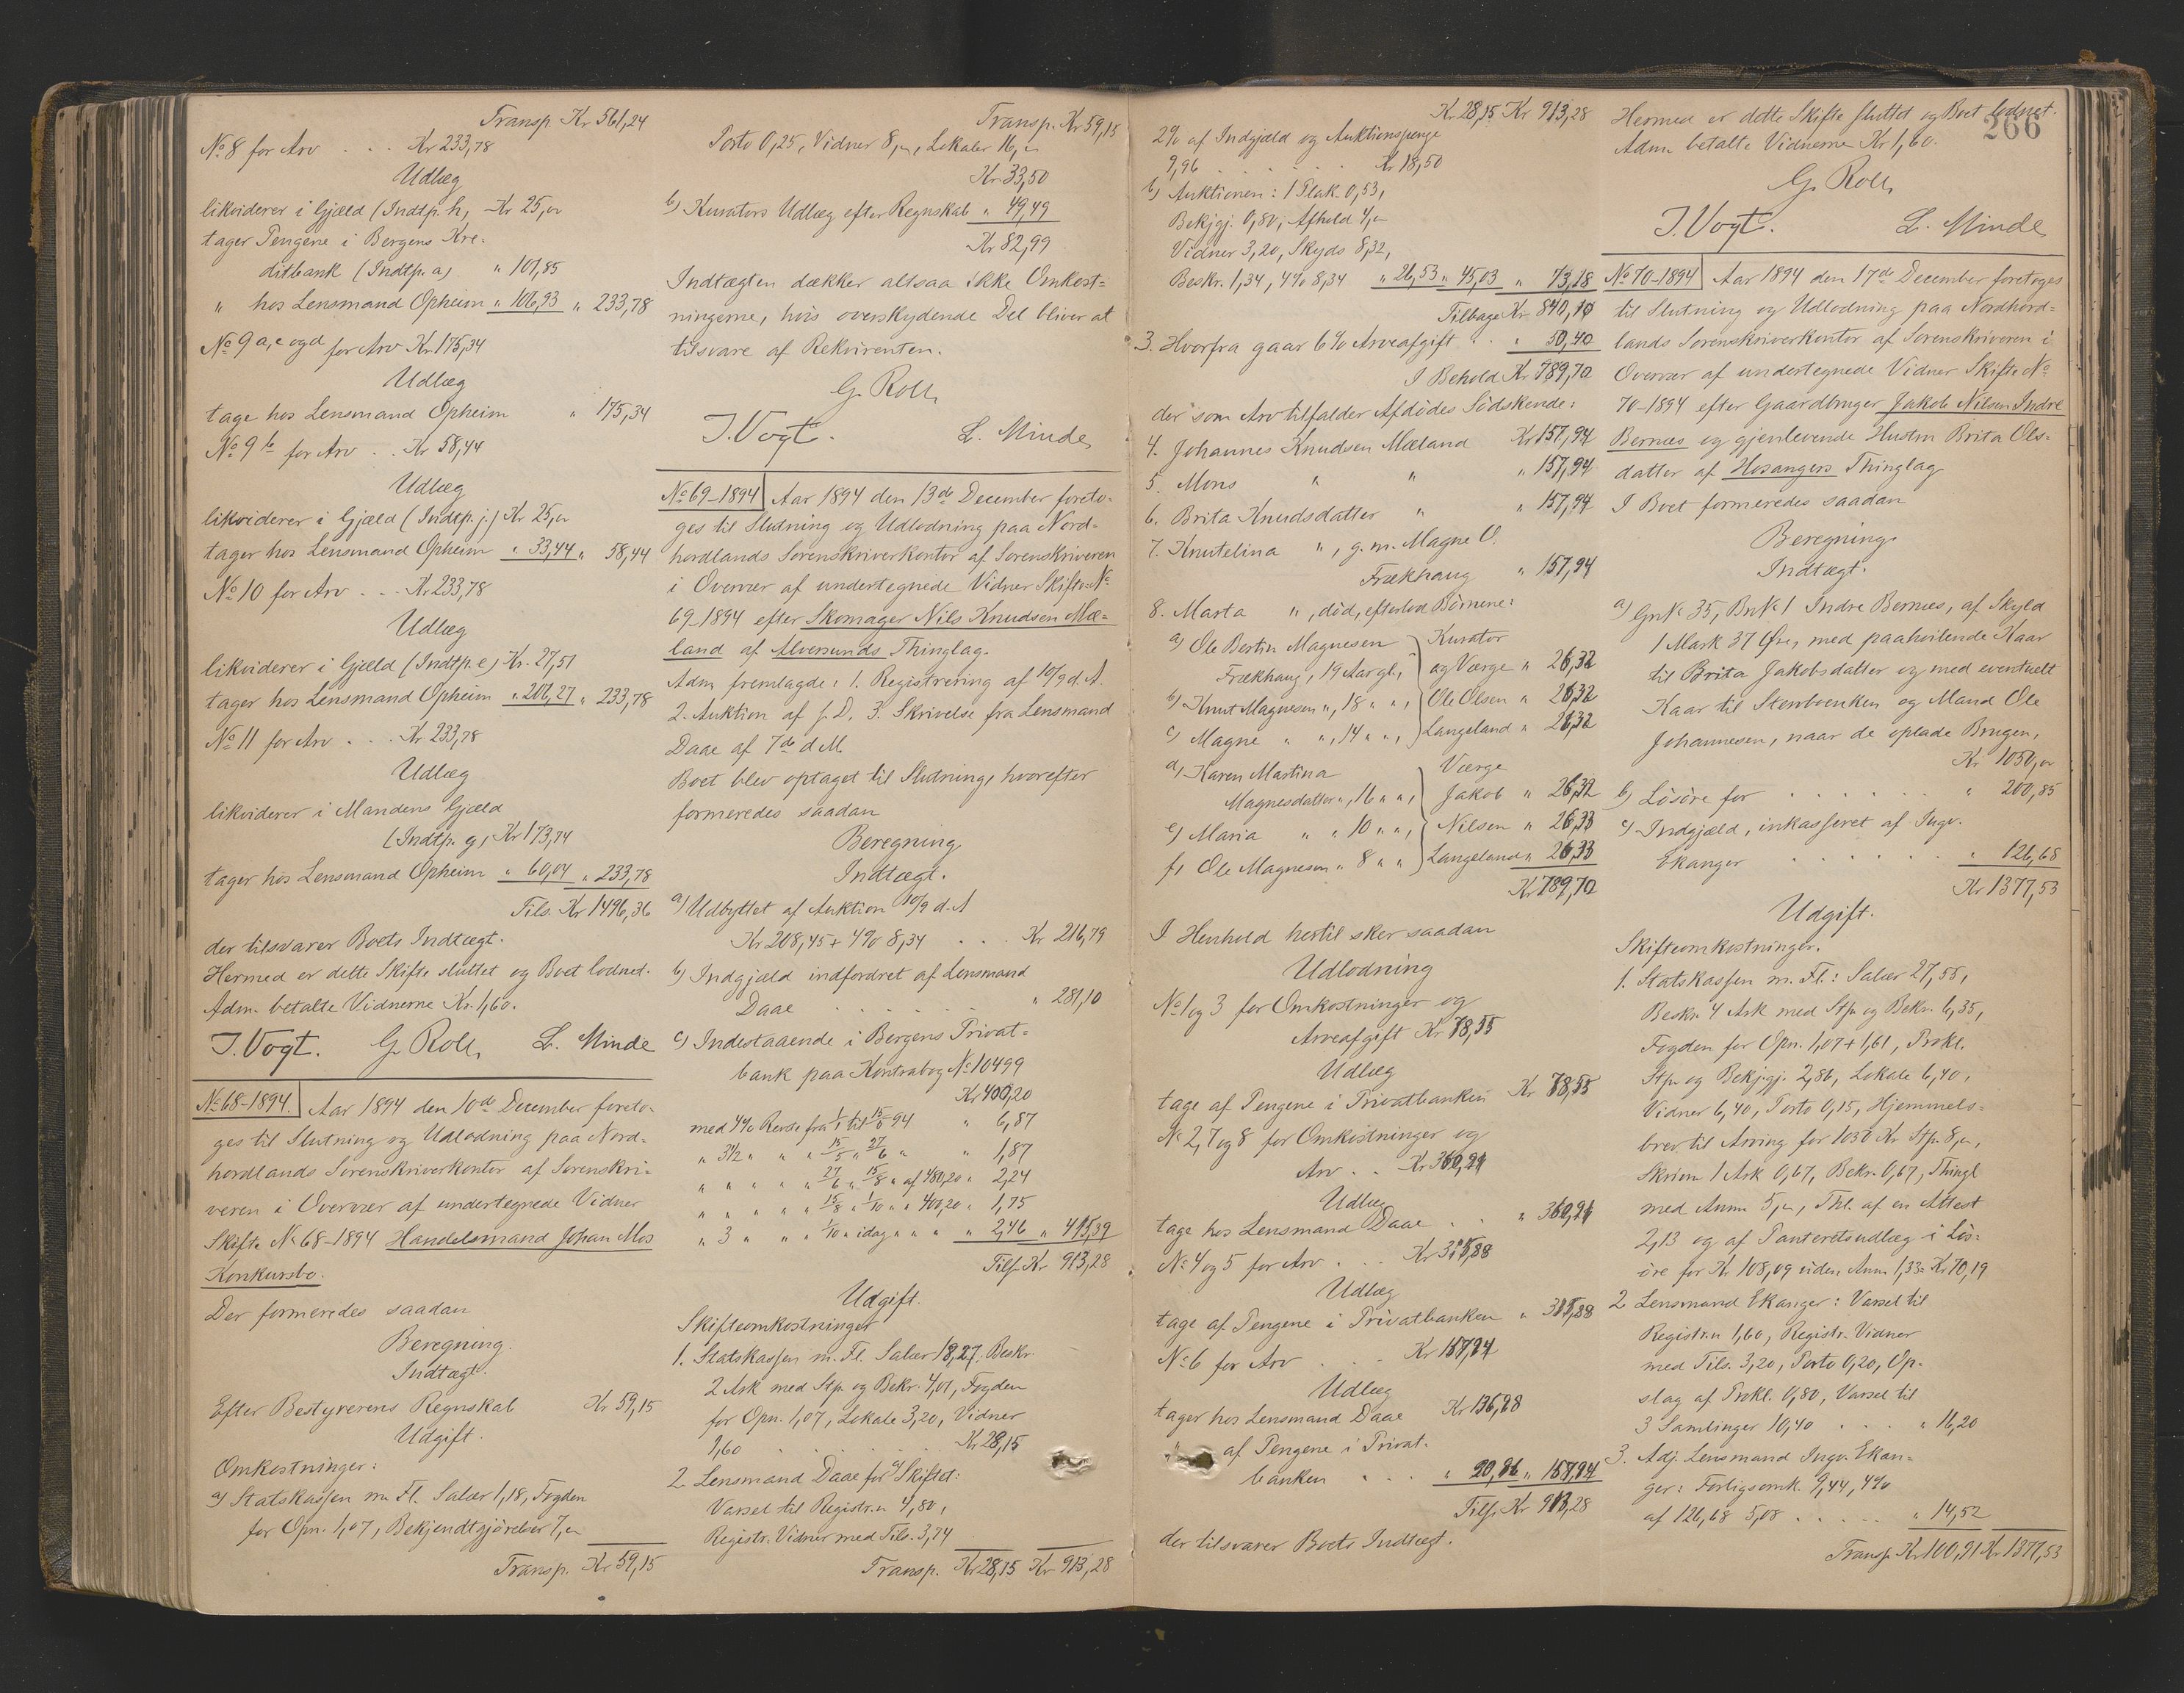 Transp. Kr 561,24
No 8 for Arv . . . Kr 233,78
Udlæg
likviderer i Gjæld (Indtp. h, Kr 25,00
tager Pengene i Bergens Kre-
ditbank (Indtp. a) " 101,85
" hos Lensmand Opheim " 106,93 " 233,78
No 9 a, c og d for Arv Kr 175,34
Udlæg
tage hos Lensmand Opheim " 175,34
No 9 b for Arv . . Kr 58,44
Udlæg
likviderer i Gjæld (Indtp. j.) Kr 25,00
tager hos Lensmand Opheim " 33,44 " 58,44
No 10 for Arv . . . Kr 233,78
Udlæg
likviderer i Gjæld (Indtp. e) Kr. 27,51
tager hos Lensmand Opheim " 206,27 " 233,78
No 11 for Arv . . . Kr 233,78
Udlæg
likviderer i Mandens Gjæld
(Indtp. g, Kr 173,74
tager hos Lensmand Opheim " 60,04 " 233,78
Tils. Kr 1496,36
der tilsvarer Boets Indtægt.
Hermed er dette Skifte sluttet og Boet lodnet.
Adm. betalte Vidnerne Kr. 1,60.
J. Vogt. G. Roll, L. Minde
No 68-1894. Aar 1894 den 10de December foreto-
ges til Slutning og Udlodning paa Nord-
hordlands Sorenskriverkontor af Sorenskri-
veren i Overvær af undertegnede Vidner
Skifte No 68-1894 Handelsmand Johan Mos
Konkursbo.
Der formeredes saadan
Beregning.
Indtægt.
Efter Bestyrerens Regnskab Kr 59,15
Udgift.
Omkostninger:
a) Statskassen m. Fl. Salær 1,18, Fogden
for Opn. 1,07, Bekjendtgjørelser 7,00
Transp. Kr 59,15
Transp. Kr 59,15
Porto 0,25, Vidner 8,00, Lokaler 16,00
Kr 33,50
b) Kurators Udlæg efter Regnskab " 49,49
Kr 82,99
Indtægten dækker altsaa ikke Omkost-
ningerne, hvis overskydende Del bliver at
tilsvare af Rekvirenten.
G. Roll,
J. Vogt. L. Minde
No 69-1894 Aar 1894 den 13de December foreto-
ges til Slutning og Udlodning paa Nord-
hordlands Sorenskriverkontor af Sorenskriveren
i Overvær af undertegnede Vidner Skifte No
69-1894 efter Skomager Nils Knudsen Mæ-
land af Alversunds Thinglag.
Adm. fremlagde: 1. Registrering af 10/9 d. A.
2. Auktion af s. D. 3. Skrivelse fra Lensmand
Daae af 7de d M.
Boet blev optaget til Slutning, hvorefter
formeredes saadan
Beregning
Indtægt.
a) Udbyttet af Auktion 10/9 d. A
Kr 208,45 + 4% 8,34 . . . Kr 216,79
b) Indgjæld indfordret af Lensmand
Daae . . . . " 281,10
c) Indestaaende i Bergens Privat-
bank paa Kontrabog No 10499
Kr 400,20
med 4% Rente fra 1/1 til 15/5 94 " 6,87
" 3½ " " " 15/5 " 27/6 " " 1,87
" " " " " 27/6 " 15/8 " af 480,20 " 2,24
" " " " " 15/8 " 1/10 " " 400,20 " 1,75
" 3 " " " 1/10 " idag " " " " 2,46 " 415,39
Tils. Kr 913,28
Udgift.
Skifteomkostninger
1. Statskassen m. Fl. Salær 18,27, Beskr.
2 Ark med Stp. og Bekr. 4,01, Fogden
for Opn. 1,07, Lokale 3,20, Vidner
1,60 . . . . . Kr 28,15
2. Lensmand Daae for a) Skiftet:
Varsel til Registr.n 4,80,
Registr. Vidner med Tils. 3,74
Transp. Kr 28,15 Kr 913,28
Kr 28,15 Kr 913,28
2% af Indgjæld og Auktionspenge
9,96 . . . . . Kr 18,50
b) Auktionen: 1 Plak. 0,53,
Bekjgj. 0,80, Afhold 4,00
Vidner 3,20, Skyds 8,32,
Beskr. 1,34, 4% 8,34 " 26,53 " 45,03 " 73,18
Tilbage Kr 840,10
3. Hvorfra gaar 6% Arveafgift . . " 50,40
I Behold Kr 789,70
der som Arv tilfalder Afdødes Sødskende:
4. Johannes Knudsen Mæland Kr 157,94
5. Mons " " " 157,94
6. Brita Knudsdatter " " 157,94
7. Knutelina " , g. m. Magne O.
Frækhaug " 157,94
8. Marta " , død, efterlod Børnene:
a) Ole Bertin Magnesen Kurator
Frækhaug, 19 Aar gl., og Værge " 26,32
b) Knut Magnesen " , 18 " " , Ole Olsen " 26,32
c) Magne " " , 14 " " , Langeland " 26,32
d) Karen Martina Værge
Magnesdatter " , 16 " " , Jakob " 26,32
e) Maria " " 10 " " , Nilsen " 26,33
f) Ole Magnesen " 8 " " Langeland " 26,33
Kr 789,70
I Henhold hertil sker saadan
Udlodning
No 1 og 3 for Omkostninger og
Arveafgift Kr 78,55
Udlæg
tage af Pengene i Privatbanken Kr 78,55
No 2, 7 og 8 for Omkostninger og
Arv . . Kr 360,91
Udlæg
tage hos Lensmand Daae . . " 360,91
No 4 og 5 for Arv . . . Kr 315,88
Udlæg
tage af Pengene i Privatbanken " 315,88
No 6 for Arv . . . Kr 157,94
Udlæg
tager hos Lensmand Daae Kr 136,98
" af Pengene i Privat-
banken . . . " 20,96 " 157,94
Tils. Kr 913,28
der tilsvarer Boets Indtægt.
266
Hermed er dette Skifte sluttet og Boet lodnet.
Adm. betalte Vidnerne Kr 1,60.
G. Roll,
J. Vogt. L. Minde
No 70-1894 Aar 1894 den 17de December foretoges
til Slutning og Udlodning paa Nordhord-
lands Sorenskriverkontor af Sorenskriveren i
Overvær af undertegnede Vidner Skifte No
70-1894 efter Gaardbruger Jakob Nilsen Indre
Bernæs og gjenlevende Hustru Brita Ols-
datter af Hosangers Thinglag
I Boet formeredes saadan
Beregning.
Indtægt.
a) Gn No 35, Bn No 1 Indre Bernæs, af Skyld
1 Mark 37 Øre, med paahvilende Kaar
til Brita Jakobsdatter og med eventuelt
Kaar til Stervboenken og Mand Ole
Johannesen, naar de oplade Brugen,
Kr 1050,00
b) Løsøre for . . . . . . " 200,85
c) Indgjæld, inkasseret af Ingv.
Ekanger . . . . . " 126,68
Kr 1377,53
Udgift.
Skifteomkostninger.
1. Statskassen m. Fl.: Salær 27,55,
Beskr. 4 Ark med Stp. og Bekr. 6,35,
Fogden for Opn. 1,07 + 1,61, Prokl.
Stp. og Bekjgj. 2,86, Lokale 6,40,
Vidner 6,40, Porto 0,15, Hjemmels-
brev til Arving for 1050 Kr Stp. 8,00,
Skrivn 1 Ark 0,67, Bekr. 0,67, Thingl
med Anm 5,00, Thl. af en Attest
2,13 og af Panteretsudlæg i Løs-
øre for Kr 108,09 uden Anm 1,33 = Kr 70,19
2. Lensmand Ekanger: Varsel til
Registr.n 1,60, Registr. Vidner
med Tils. 3,20, Porto 0,20, Op-
slag af Prokl. 0,80, Varsel til
3 Samlinger 10,40 . . . . " 16,20
3. Adj. Lensmand Ingv. Ekan-
ger: Forligsomk. 9,44, 4%
af 126,68 5,08 . . . . . " 14,52
Transp. Kr 100,91 Kr 1377,53